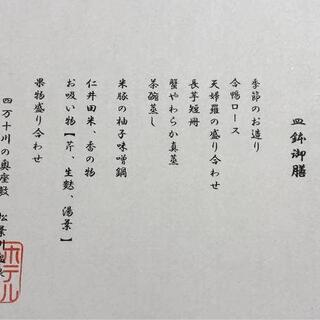 皿鉢御膳
季節のお造り
合鴨ロース
天婦羅の盛り合わせ
長芋短冊
蟹やわらか真蒸
茶碗蒸し
米豚の柚子味噌鍋
仁井田米、香の物
お吸い物【芹、生麩、湯葉】
果物盛り合わせ
四万十川の奥座敷 松葉川
ホテル